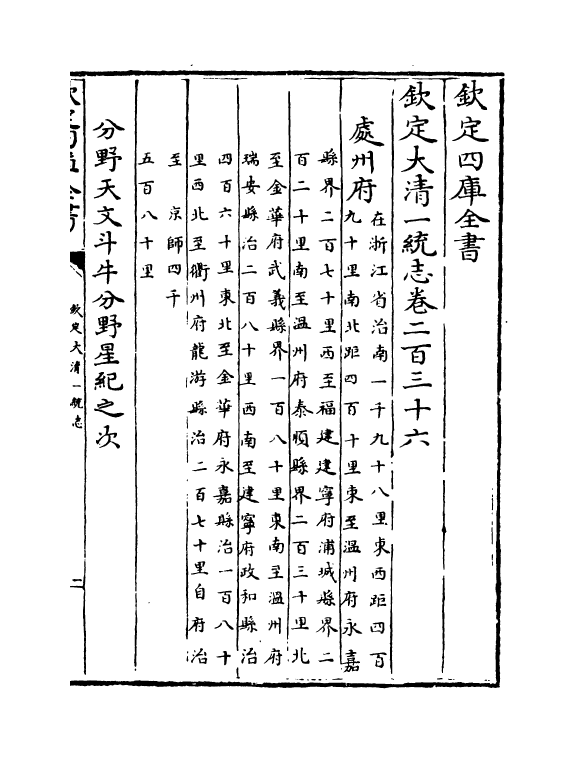 欽定四庫全書
欽定大清一統志卷二百三十六
處州府
在浙江省治南一千九十八里東西距四百
九十里南北距四百十里東至温州府永嘉
縣界二百七十里西至福建建寧府浦城縣界二
百二十里南至温州府泰順縣界二百三十里北
至金華府武義縣界一百八十里東南至温州府
瑞安縣治二百八十里西南至建寧府政和縣治
四百六十里東北至金華府永嘉縣治一百八十
里西北至衢州府龍游縣治二百七十里自府治
至　京師四千
五百八十里
分野天文斗牛分野星紀之次
欽定大清一統志
二